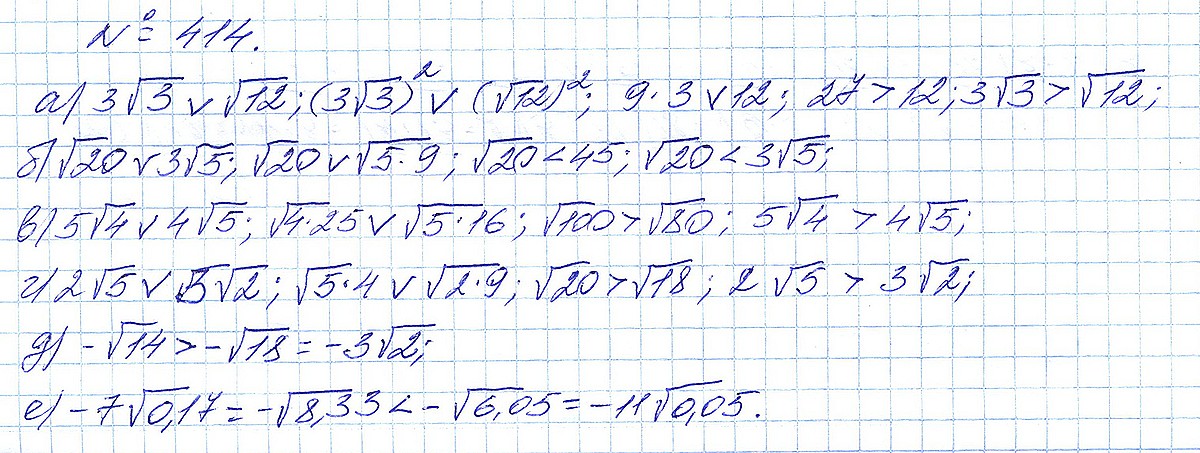 № 414.
а) 3√3 ∨ √12; (3√3)² ∨ (√12)²; 9·3 ∨ 12; 27 > 12; 3√3 > √12;
б) √20 ∨ 3√5; √20 ∨ √5·9; √20 < 45; √20 < 3√5;
в) 5√4 ∨ 4√5; √4·25 ∨ √5·16; √100 > √80; 5√4 > 4√5;
г) 2√5 ∨ 3√2; √5·4 ∨ √2·9; √20 > √18; 2√5 > 3√2;
д) -√14 > -√18 = -3√2;
е) -7√0,17 = -√8,33 < -√6,05 = -11√0,05.